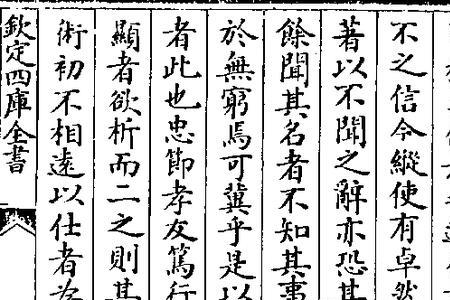 不之信今縱使有卓然
著以不聞之辭亦恐其
餘聞其名者不知其事
於無窮焉可冀乎是以
者此也忠節孝友篤行
顯者欲析而二之則其
術初不相遠以仕者為
欽定四庫全書